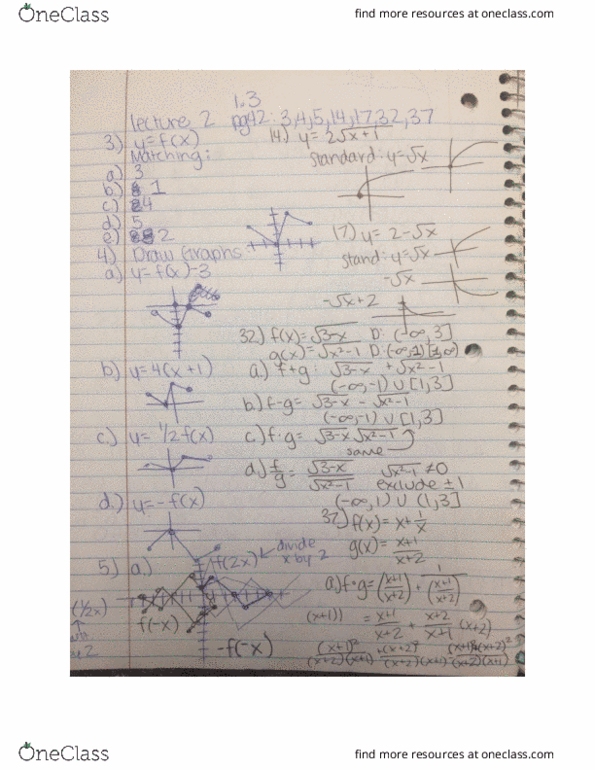 OneClass
find more resources at oneclass.com
1.3
lecture 2 pg42: 3,4,5,14,17,32,37
3) y=f(x)
Matching:
a) 3
b) 1
c) 4
d) 5
e) 2
4) Draw Graphs
a) y=f(x)-3
b) y=4(x+1)
c.) y= 1/2 f(x)
d.) y=-f(x)
5) a.)
f(2x) ← divide
x by 2
(1/2x)
f(-x)
-f(-x)
14) y=2√x+1
standard: y=√x
17) y= 2-√x
stand: y=√x
-√x
-√x+2
32) f(x)=√3-x D: (-∞,3]
g(x)=√x²-1 D:(-∞,1][1,∞)
a) f+g: √3-x + √x²-1
(-∞,-1) ∪ [1,3]
b) f-g= √3-x - √x²-1
(-∞,-1) ∪ [1,3]
c) f·g= √3-x √x²-1
same
d.) f/g = √3-x / √x²-1 √x²-1 ≠0
exclude ±1
(-∞,1) ∪ (1,3]
37) f(x)= x+1/x
g(x)= x+1/x+2
a) f∘g= (x+1/x+2) + 1/(x+1/x+2)
(x+1)) = x+1/x+2 + x+2/x+1 (x+2)
(x+1)²/(x+2)(x+1) + (x+2)²/(x+2)(x+1) = (x+1)²+(x+2)²/(x+2)(x+1)
OneClass
find more resources at oneclass.com